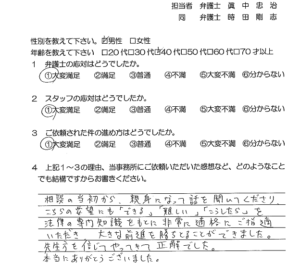 担当者 弁護士 眞中忠治
同 弁護士 時田剛志
性別を教えて下さい。☑男性 □女性
年齢を教えて下さい □20代□30代☑40代□50代□60代□70才以上
1 弁護士の応対はどうでしたか。
①大変満足 ②満足 ③普通 ④不満 ⑤大変不満 ⑥分からない
2 スタッフの応対はどうでしたか。
①大変満足 ②満足 ③普通 ④不満 ⑤大変不満 ⑥分からない
3 ご依頼された件の進め方はどうでしたか。
①大変満足 ②満足 ③普通 ④不満 ⑤大変不満 ⑥分からない
4 上記1～3の理由、当事務所にご依頼いただいた感想など、どのようなこと
でも結構ですからお書きください。
相談の当初から、親身になって話を聞いてくださり
こちらの希望にも「できる」「難しい」「こうしたら」を
法律の専門知識をもとに非常に適格にご指導
いただき、大きな前進を勝ちとることができました。
先生方を信じてやってきて正解でした。
本当にありがとうございました。